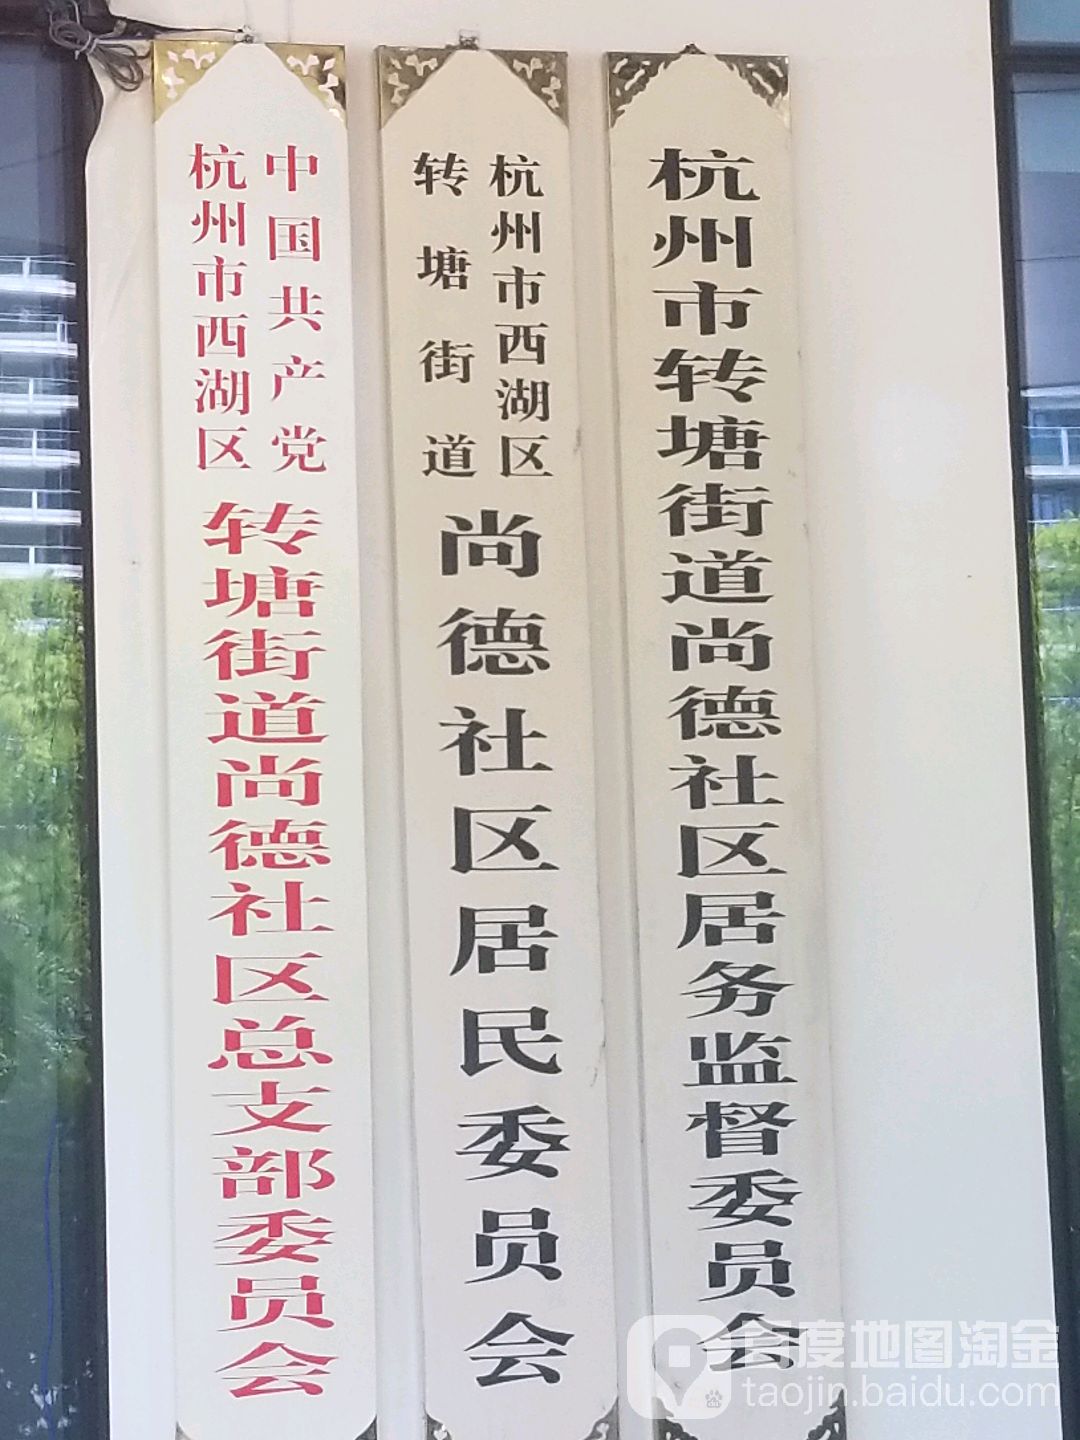 中国共产党
杭州市西湖区
转塘街道尚德社区总支部委员会
杭州市西湖区
转塘街道
尚德社区居民委员会
杭州市转塘街道尚德社区居务监督委员会
百度地图淘金
taojin.baidu.com